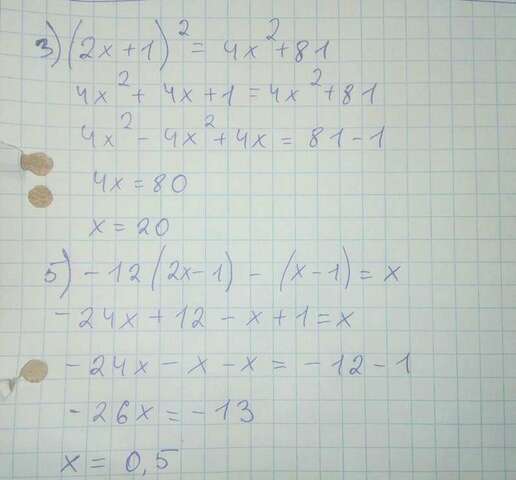 3) (2x+1)² = 4x²+81
4x²+ 4x+1=4x²+81
4x²- 4x²+4x = 81-1
4x=80
x=20
5) -12(2x-1) - (x-1)=x
-24x+12-x+1=x
-24x-x-x=-12-1
-26x=-13
x=0,5